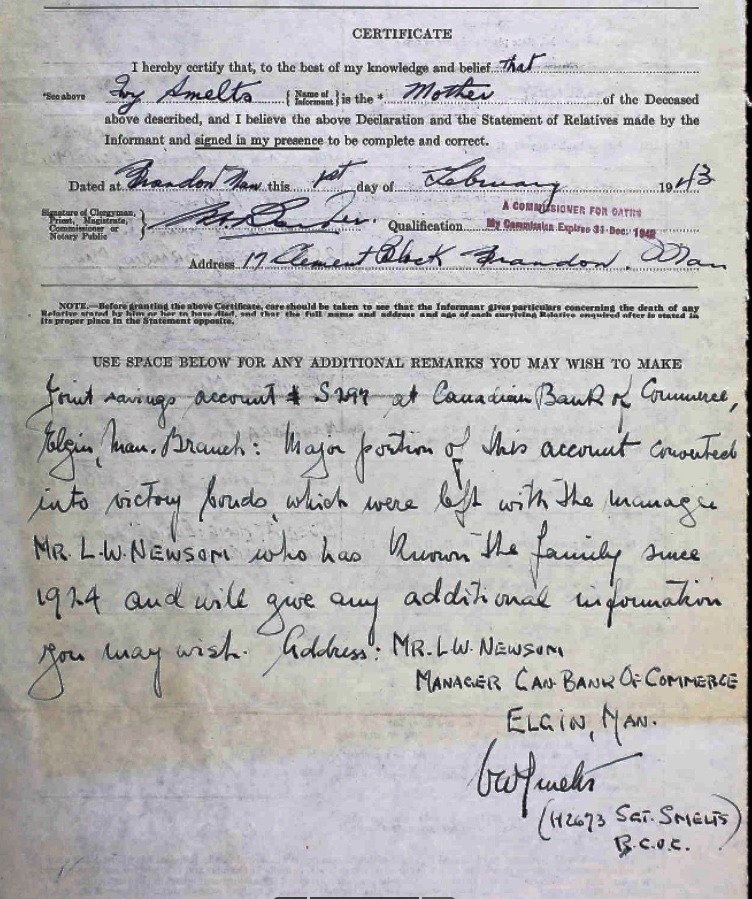 CERTIFICATE
I hereby certify that, to the best of my knowledge and belief that
*See above Ivy Smelts { Name of Informant } is the * Mother of the Deceased
above described, and I believe the above Declaration and the Statement of Relatives made by the
Informant and signed in my presence to be complete and correct.
Dated at Brandon Man this 1st day of February 1943
Signature of Clergyman, Priest, Magistrate, Commissioner or Notary Public } Qualification A COMMISSIONER FOR OATHS
My Commission Expires 31 Dec.
Address 17 Clement Block Brandon, Man
NOTE.—Before granting the above Certificate, care should be taken to see that the Informant gives particulars concerning the death of any
Relative stated by him or her to have died, and that the full name and address and age of each surviving Relative enquired after is stated in
its proper place in the Statement opposite.
USE SPACE BELOW FOR ANY ADDITIONAL REMARKS YOU MAY WISH TO MAKE
Joint savings account # S297 at Canadian Bank of Commerce,
Elgin, Man. Branch: Major portion of this account converted
into victory bonds, which were left with the manager
MR. L.W. NEWSOM who has known the family since
1924 and will give any additional information
you may wish. Address: MR. L.W. NEWSOM
MANAGER CAN. BANK OF COMMERCE
ELGIN, MAN.
Smelts
(H2673 SGT. SMELTS)